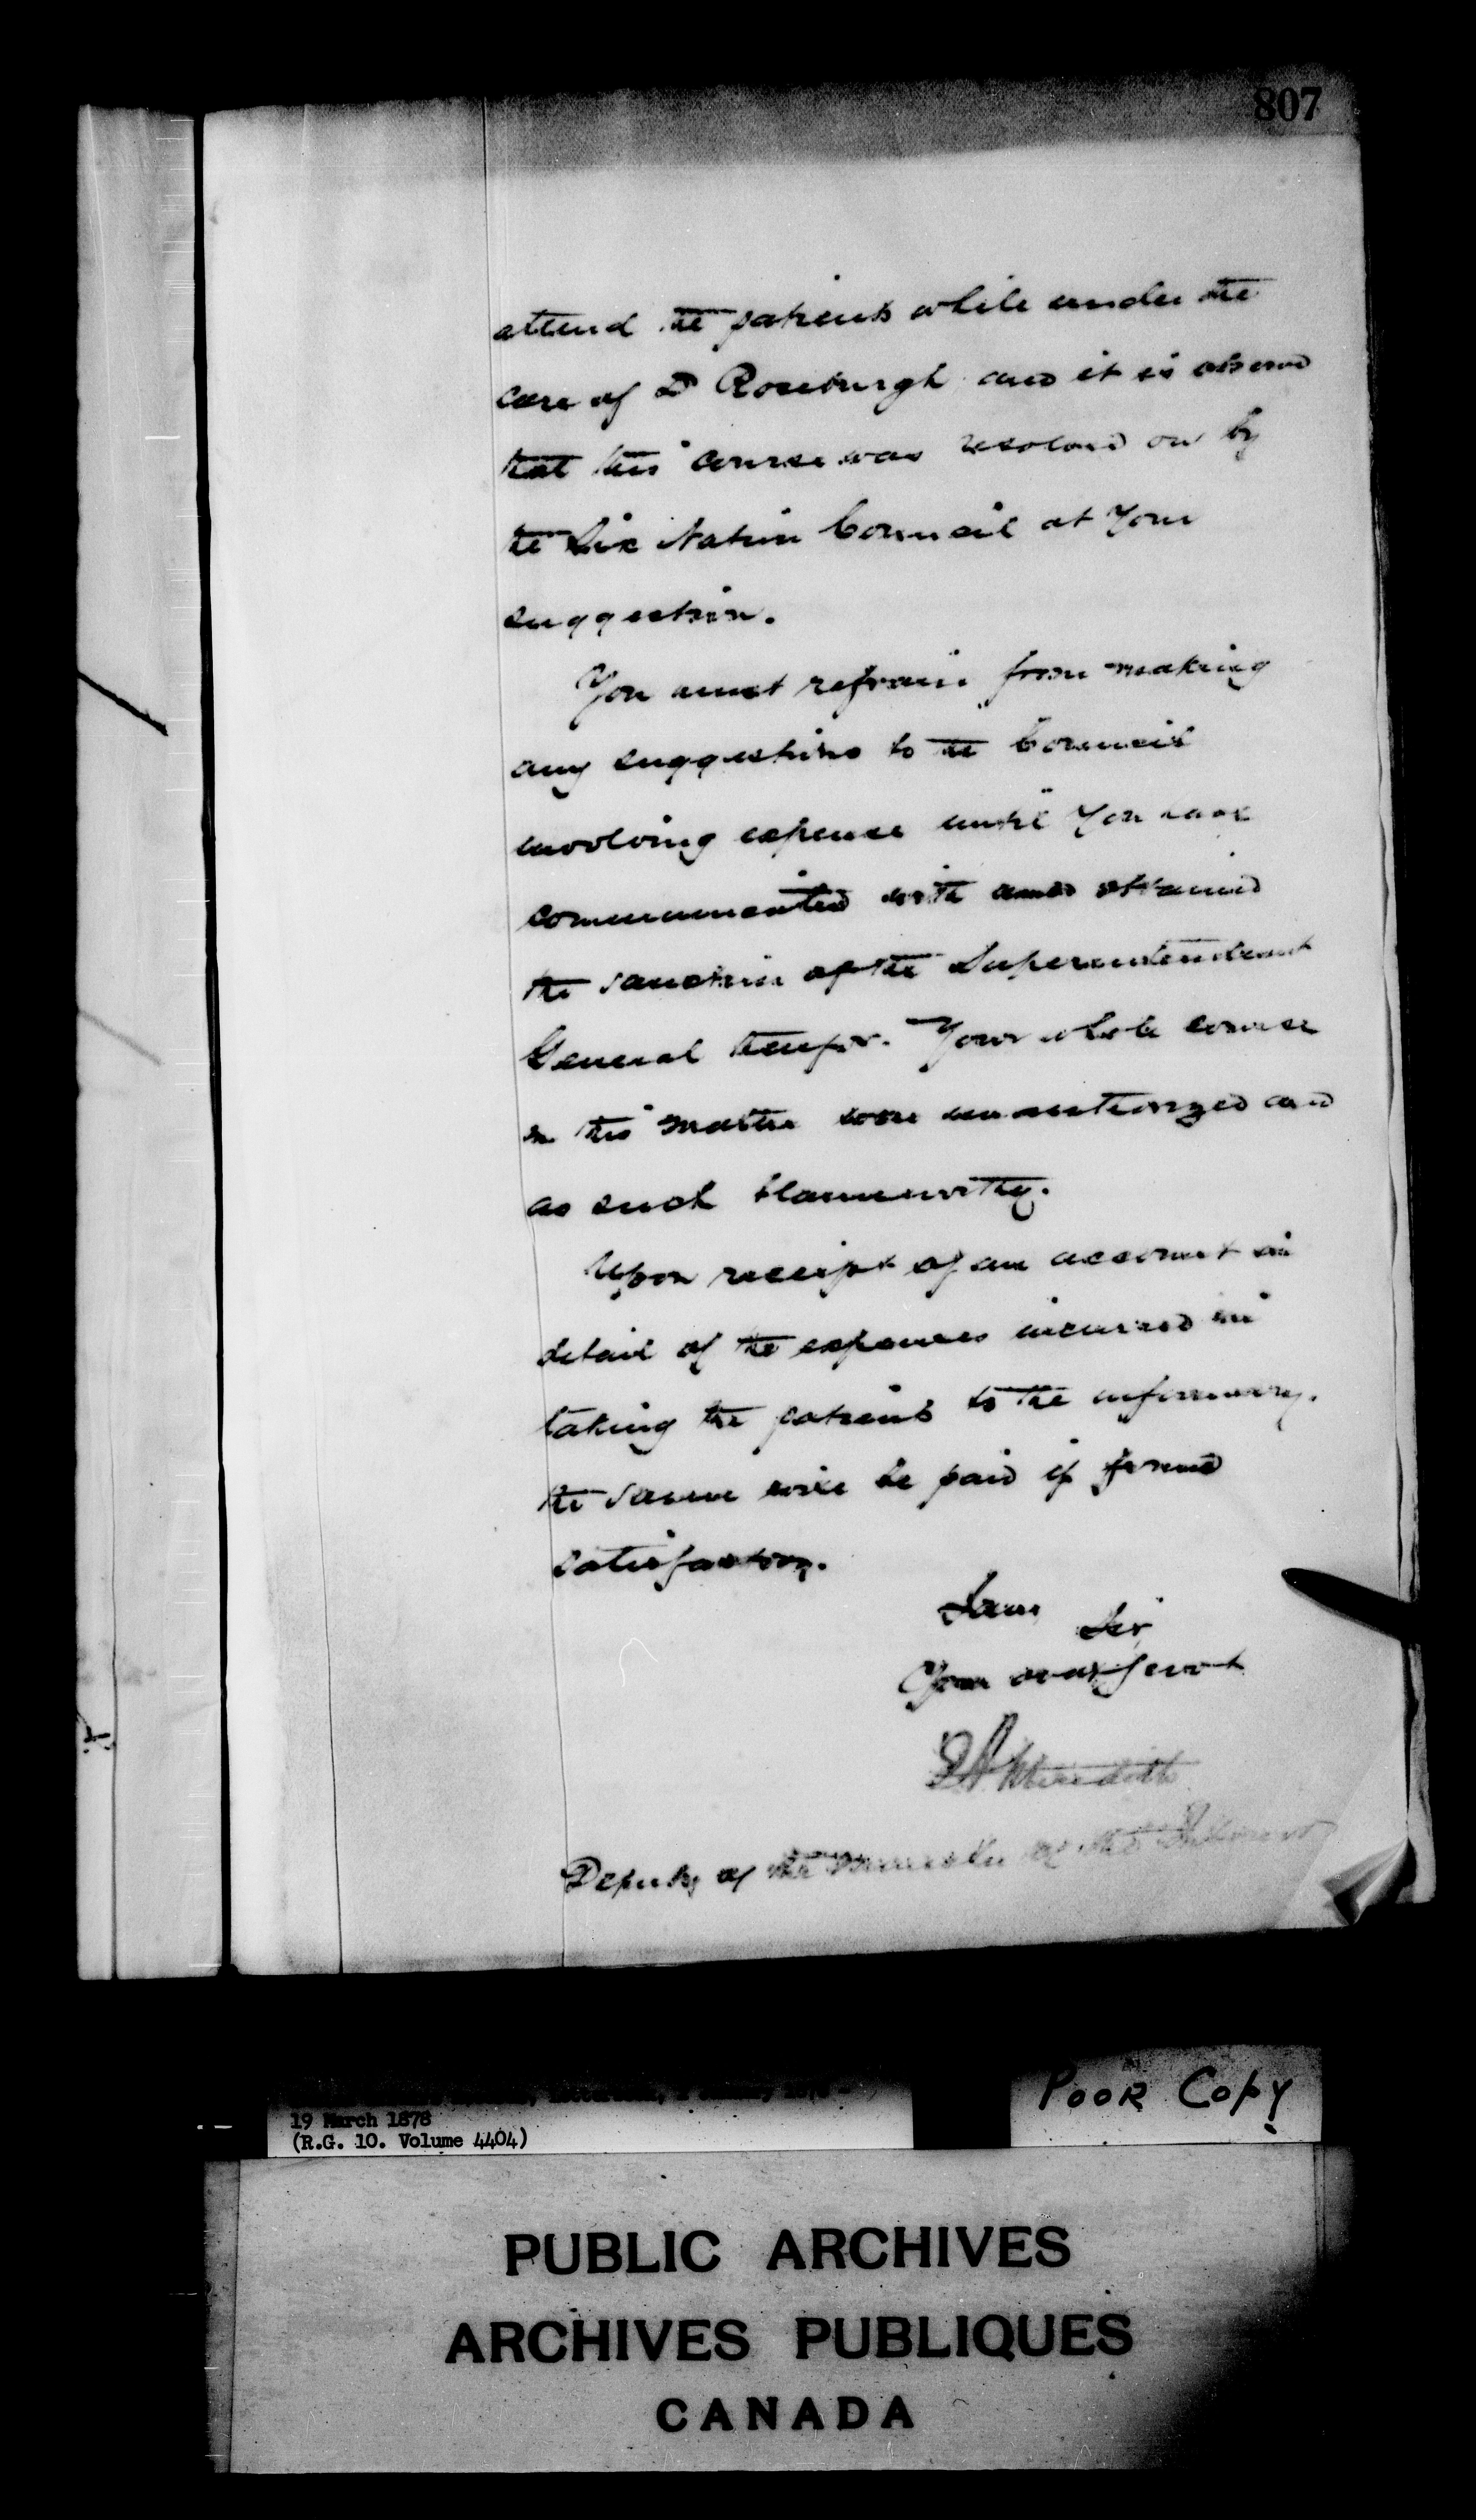 807
attend the patients while under the
care of Dr Roseburgh and it is observed
that this course was resolved on by
the Six Nation Council at your
suggestion.
You must refrain from making
any suggestions to the Council
involving expense until you have
communicated with and obtained
the sanction of the Superintendent
General therefor. Your whole course
in this matter were unauthorized and
as such blameworthy.
Upon receipt of an account in
detail of the expenses incurred in
taking the patients to the infirmary.
the same will be paid if found
satisfactory.
I am Sir
Your obdt Servt
E A Meredith
Deputy of the Minister of the Interior
19 March 1878
(R.G. 10. Volume 4404)
POOR COPY
PUBLIC ARCHIVES
ARCHIVES PUBLIQUES
CANADA